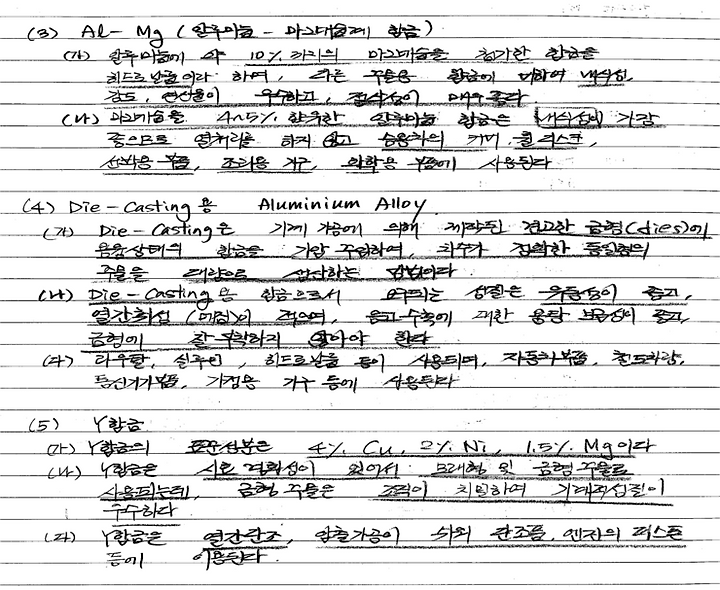 (3) Al - Mg (알루미늄 - 마그네슘계 합금)
(가) 알루미늄에 약 10% 까지의 마그네슘을 첨가한 합금을
히드로날륨이라 하며, 다른 주물용 합금에 비하여 내식성,
강도, 연신율이 우수하고, 절삭성이 매우 좋다
(나) 마그네슘을 4~5% 함유한 알루미늄 합금은 내식성이 가장
좋으므로 열처리를 하지 않고 승용차의 커버, 휠 디스크,
선박용 부품, 조리용 기구, 화학용 부품에 사용된다
(4) Die - Casting 용 Aluminium Alloy
(가) Die - Casting은 기계 가공에 의해 제작된 견고한 금형(dies)에
용융상태의 합금을 가압 주입하여, 치수가 정확한 동일형의
주물을 대량으로 생산하는 방법이다
(나) Die - Casting 용 합금으로서 요구되는 성질은 유동성이 좋고,
열간취성 (메짐)이 적으며, 응고수축에 대한 용탕 보급성이 좋고,
금형에 잘 부착하지 않아야 한다
(다) 라우탈, 실루민, 히드로날륨 등이 사용되며, 자동차부품, 철도차량,
통신기기부품, 가정용 기구 등에 사용된다
(5) Y합금
(가) Y합금의 표준성분은 4% Cu, 2% Ni, 1.5% Mg이다
(나) Y합금은 시효 경화성이 있어서 모래형 및 금형 주물로
사용되는데, 금형 주물은 조직이 치밀하여 기계적성질이
우수하다
(다) Y합금은 열간단조, 압출가공이 쉬워 단조품, 엔진의 피스톤
등에 이용된다.